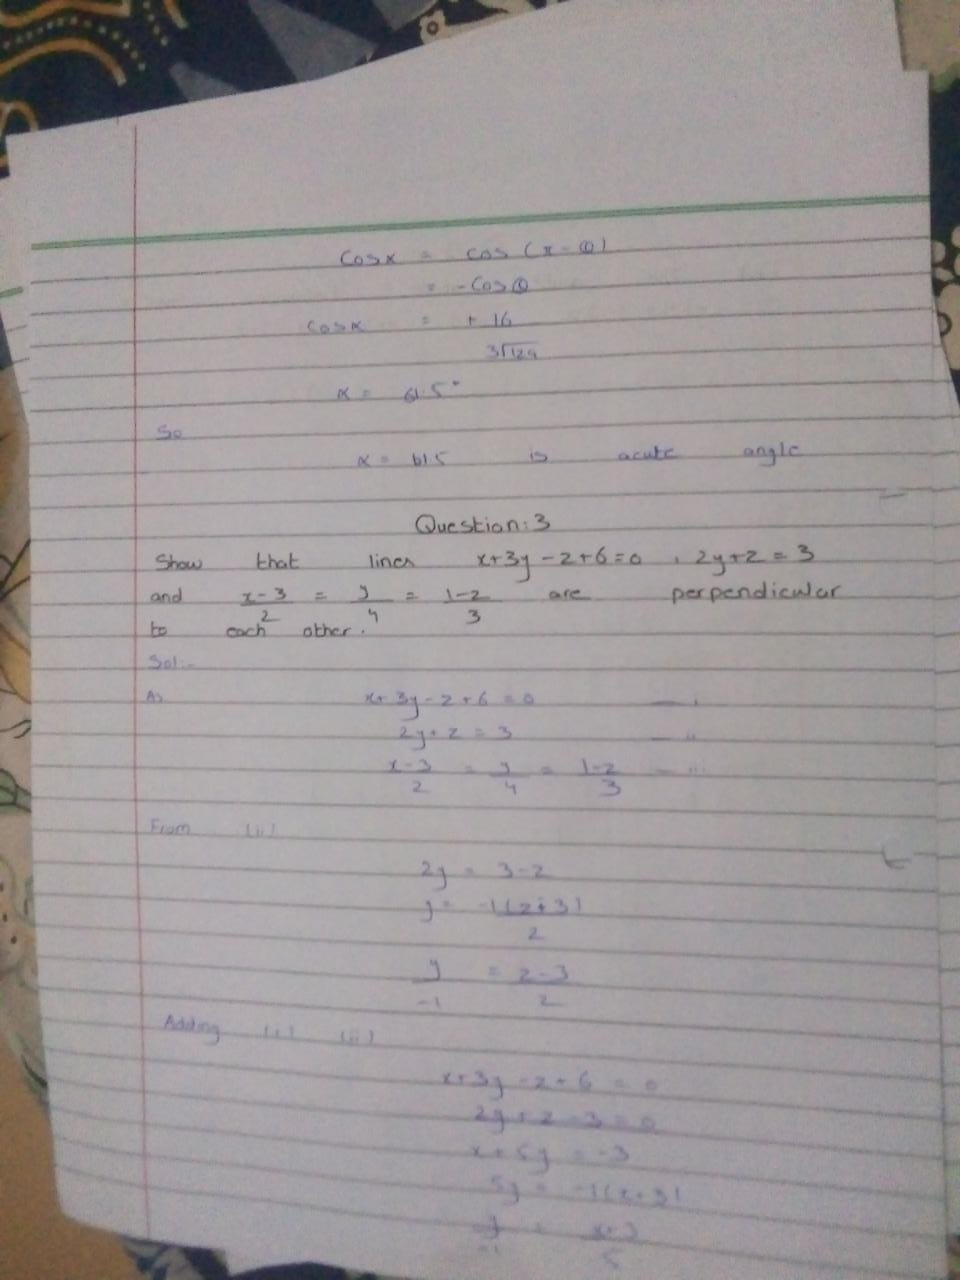 Cosα = cos (π - θ)
= -Cosθ
Cosα = + 16
3√129
α = 61.5°
So
α = 61.5 is acute angle
Question:3
Show that lines x+3y-z+6=0 , 2y+z=3
and x-3/2 = y/4 = 1-z/3 are perpendicular
to each other.
Sol:-
As x+3y-z+6=0 — i
2y+z=3 — ii
x-3/2 = y/4 = 1-z/3 — iii
From (ii)
2y = 3-z
y = -1(z+3)/2
y/-1 = z-3/2
Adding (i) (ii)
x+3y-z+6=0
2y+z-3=0
x+5y=-3
5y = -1(x+3)
y/-1 = x+3/5